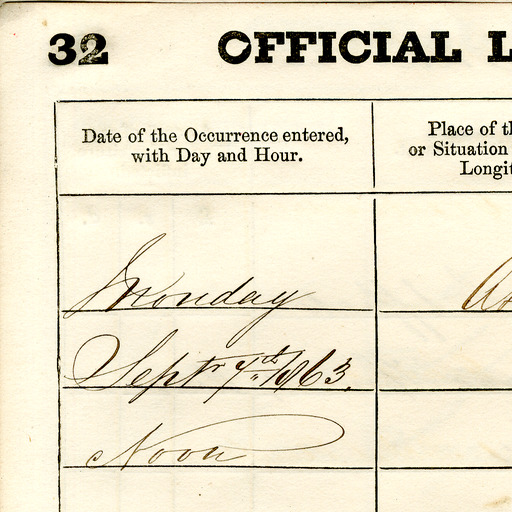 32 OFFICIAL L
Date of the Occurrence entered,
with Day and Hour.
Place of th
or Situation
Longit
Monday
Sept 7th 1863.
Noon